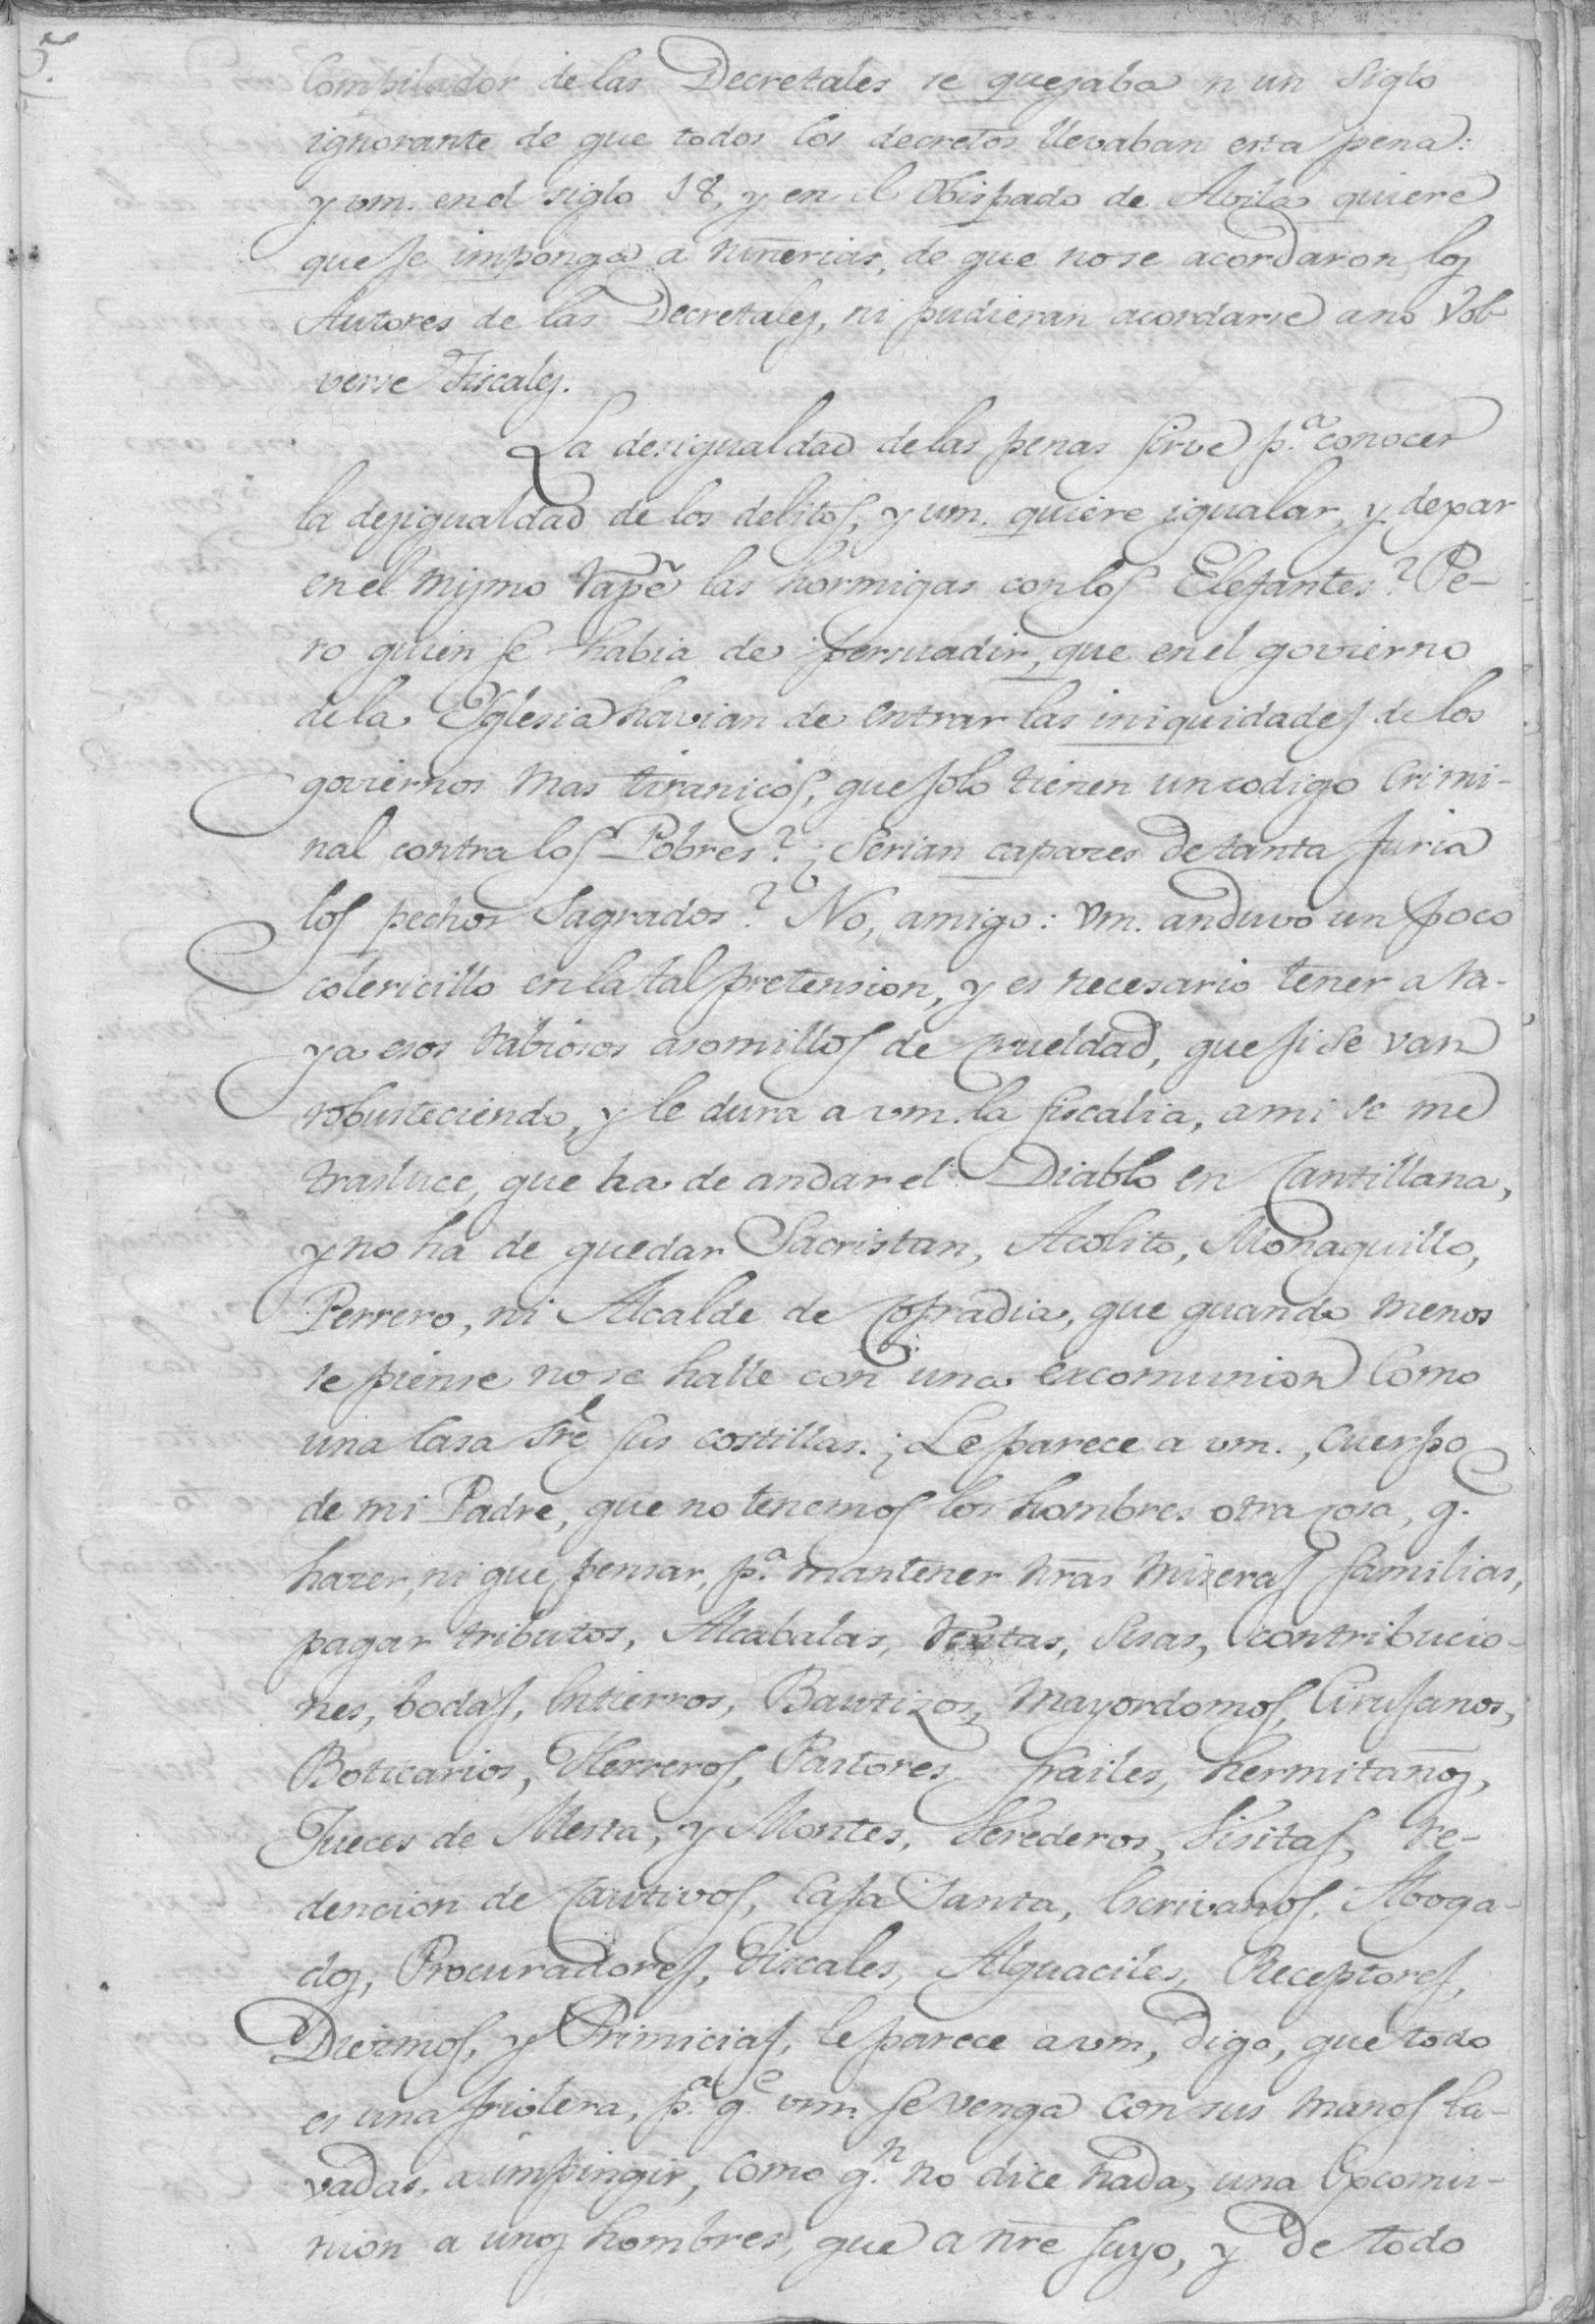 5.
Compilador de las Decretales se quejaba n un Siglo
ignorante de que todos los decretos llevaban esta pena:
y vm. en el siglo 18, y en el Obispado de Avila quiere
que se imponga a niñerias, de que no se acordaron los
Autores de las Decretales, ni pudieran acordarse a no Vol-
verse Fiscales.
La desigualdad de las penas sirve p.ª conocer
la desigualdad de los delitos, y vm. quiere igualar, y dexar
en el mismo las hormigas con los Elefantes? Pe-
ro quien se habia de persuadir, que en el govierno
de la Yglesia havian de entrar las iniquidades de los
goviernos mas tiranicos, que solo tienen un codigo Crimi-
nal contra los Pobres? ¿Serian capazes de tanta furia
los pechos Sagrados? No, amigo: vm. anduvo un poco
colericillo en la tal pretension, y es necesario tener a ra-
ya esos rabiosos asomillos de crueldad, que si se van
robusteciendo, y le dura a vm. la fiscalia, a mi se me
trasluce, que ha de andar el Diablo en Cantillana,
y no ha de quedar Sacristan, Acolito, Monaguillo,
Perrero, ni Alcalde de Cofradia, que quando menos
se piense no se halle con una excomunion Como
una Casa sre sus costillas. ¿Le parece a vm., cuerpo
de mi Padre, que no tenemos los hombres otra cosa, q.
hazer, ni que pensar, p.ª mantener nras miseras familias,
pagar tributos, Alcabalas, rentas, sisas, contribucio-
nes, bodas, Entierros, Bautizos, Mayordomos, Cirujanos,
Boticarios, Herreros, Pastores, frailes, hermitaños,
Jueces de Mesta, y Montes, Verederos, Visitas, re-
dencion de Cautivos, Casa Santa, Escrivanos, Aboga-
dos, Procuradores, Fiscales, Alguaciles, Receptores,
Diezmos, y Primicias, le parece a vm, digo, que todo
es una friolera, p.ª q.e vm. se venga con sus manos la-
vadas, a impingir, como q.n no dice nada, una Excomu-
nion a unos hombres, que a nre suyo, y de todo